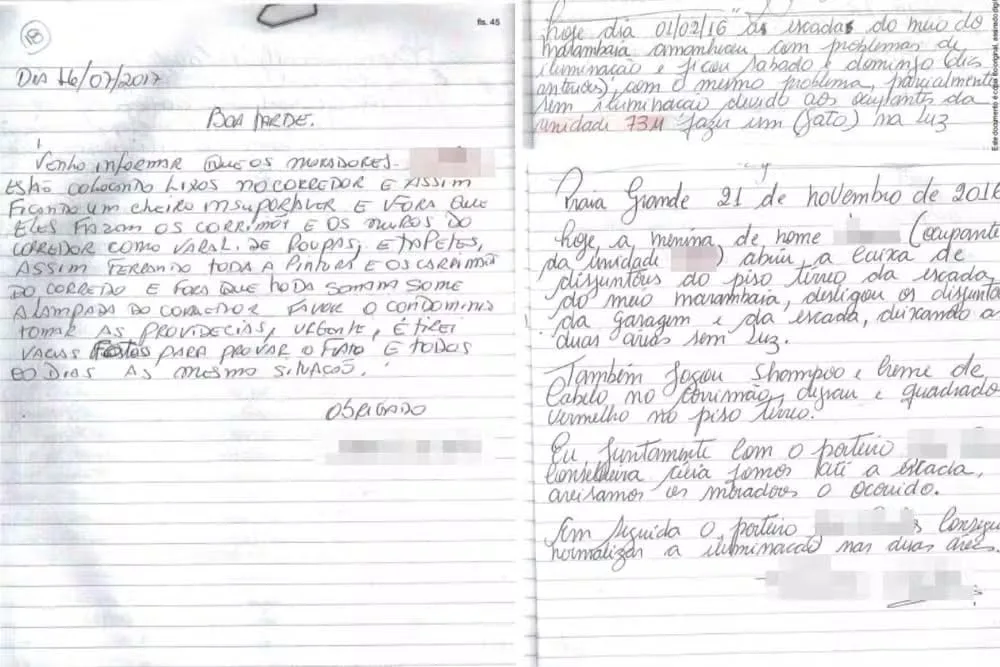 18
fls. 45
DIA 16/07/2017
BOA TARDE.
VENHO INFORMAR QUE OS MORADORES
ESTÃO COLOCANDO LIXOS NO CORREDOR E ASSIM
FICANDO UM CHEIRO INSUPORTAVER E FORA QUE
ELES FAZAM OS CORRIMÃO E OS MUROS DO
CORREDOR COMO VARAL DE ROUPAS, E TAPETES,
ASSIM FERRANDO TODA A PINTURA E OS CARRIMÃO
DO CORREDO E FORA QUE TODA SOMAM SOME
A LAMPADA DO CORREDOR FAVOR O CONDOMINIO
TOMAR AS PROVIDECIAS, URGENTE, E TIREI
VARIAS FOTOS PARA PROVAR O FATO E TODOS
OS DIAS AS MESMO SITUAÇÃO.
OBRIGADO
hoje dia 01/02/16 as escadas do meio do
marambaia amanheceu com problemas de
iluminação e ficou sabado e domingo (dias
anteriores), com o mesmo problema, parcialmente
sem iluminacao devido aos ocupantes da
unidade 73M fazer um (gato) na luz
Praia Grande 21 de novembro de 2016
hoje a menina de nome (ocupante
da unidade ) abriu a caixa de
disjuntores do piso térreo da escada
do meio marambaia, desligou os disjunto
da garagem e da escada, deixando as
duas áreas sem luz.
Também jogou shampoo e creme de
cabelo no corrimão, degrau e quadrado
vermelho no piso térreo.
Eu juntamente com o porteiro
conselheira célia fomos até a escada,
avisamos os moradores o ocorrido.
Em seguida o porteiro consegu
normalizar a iluminacao nas duas áreas.
Este documento é cópia do original,